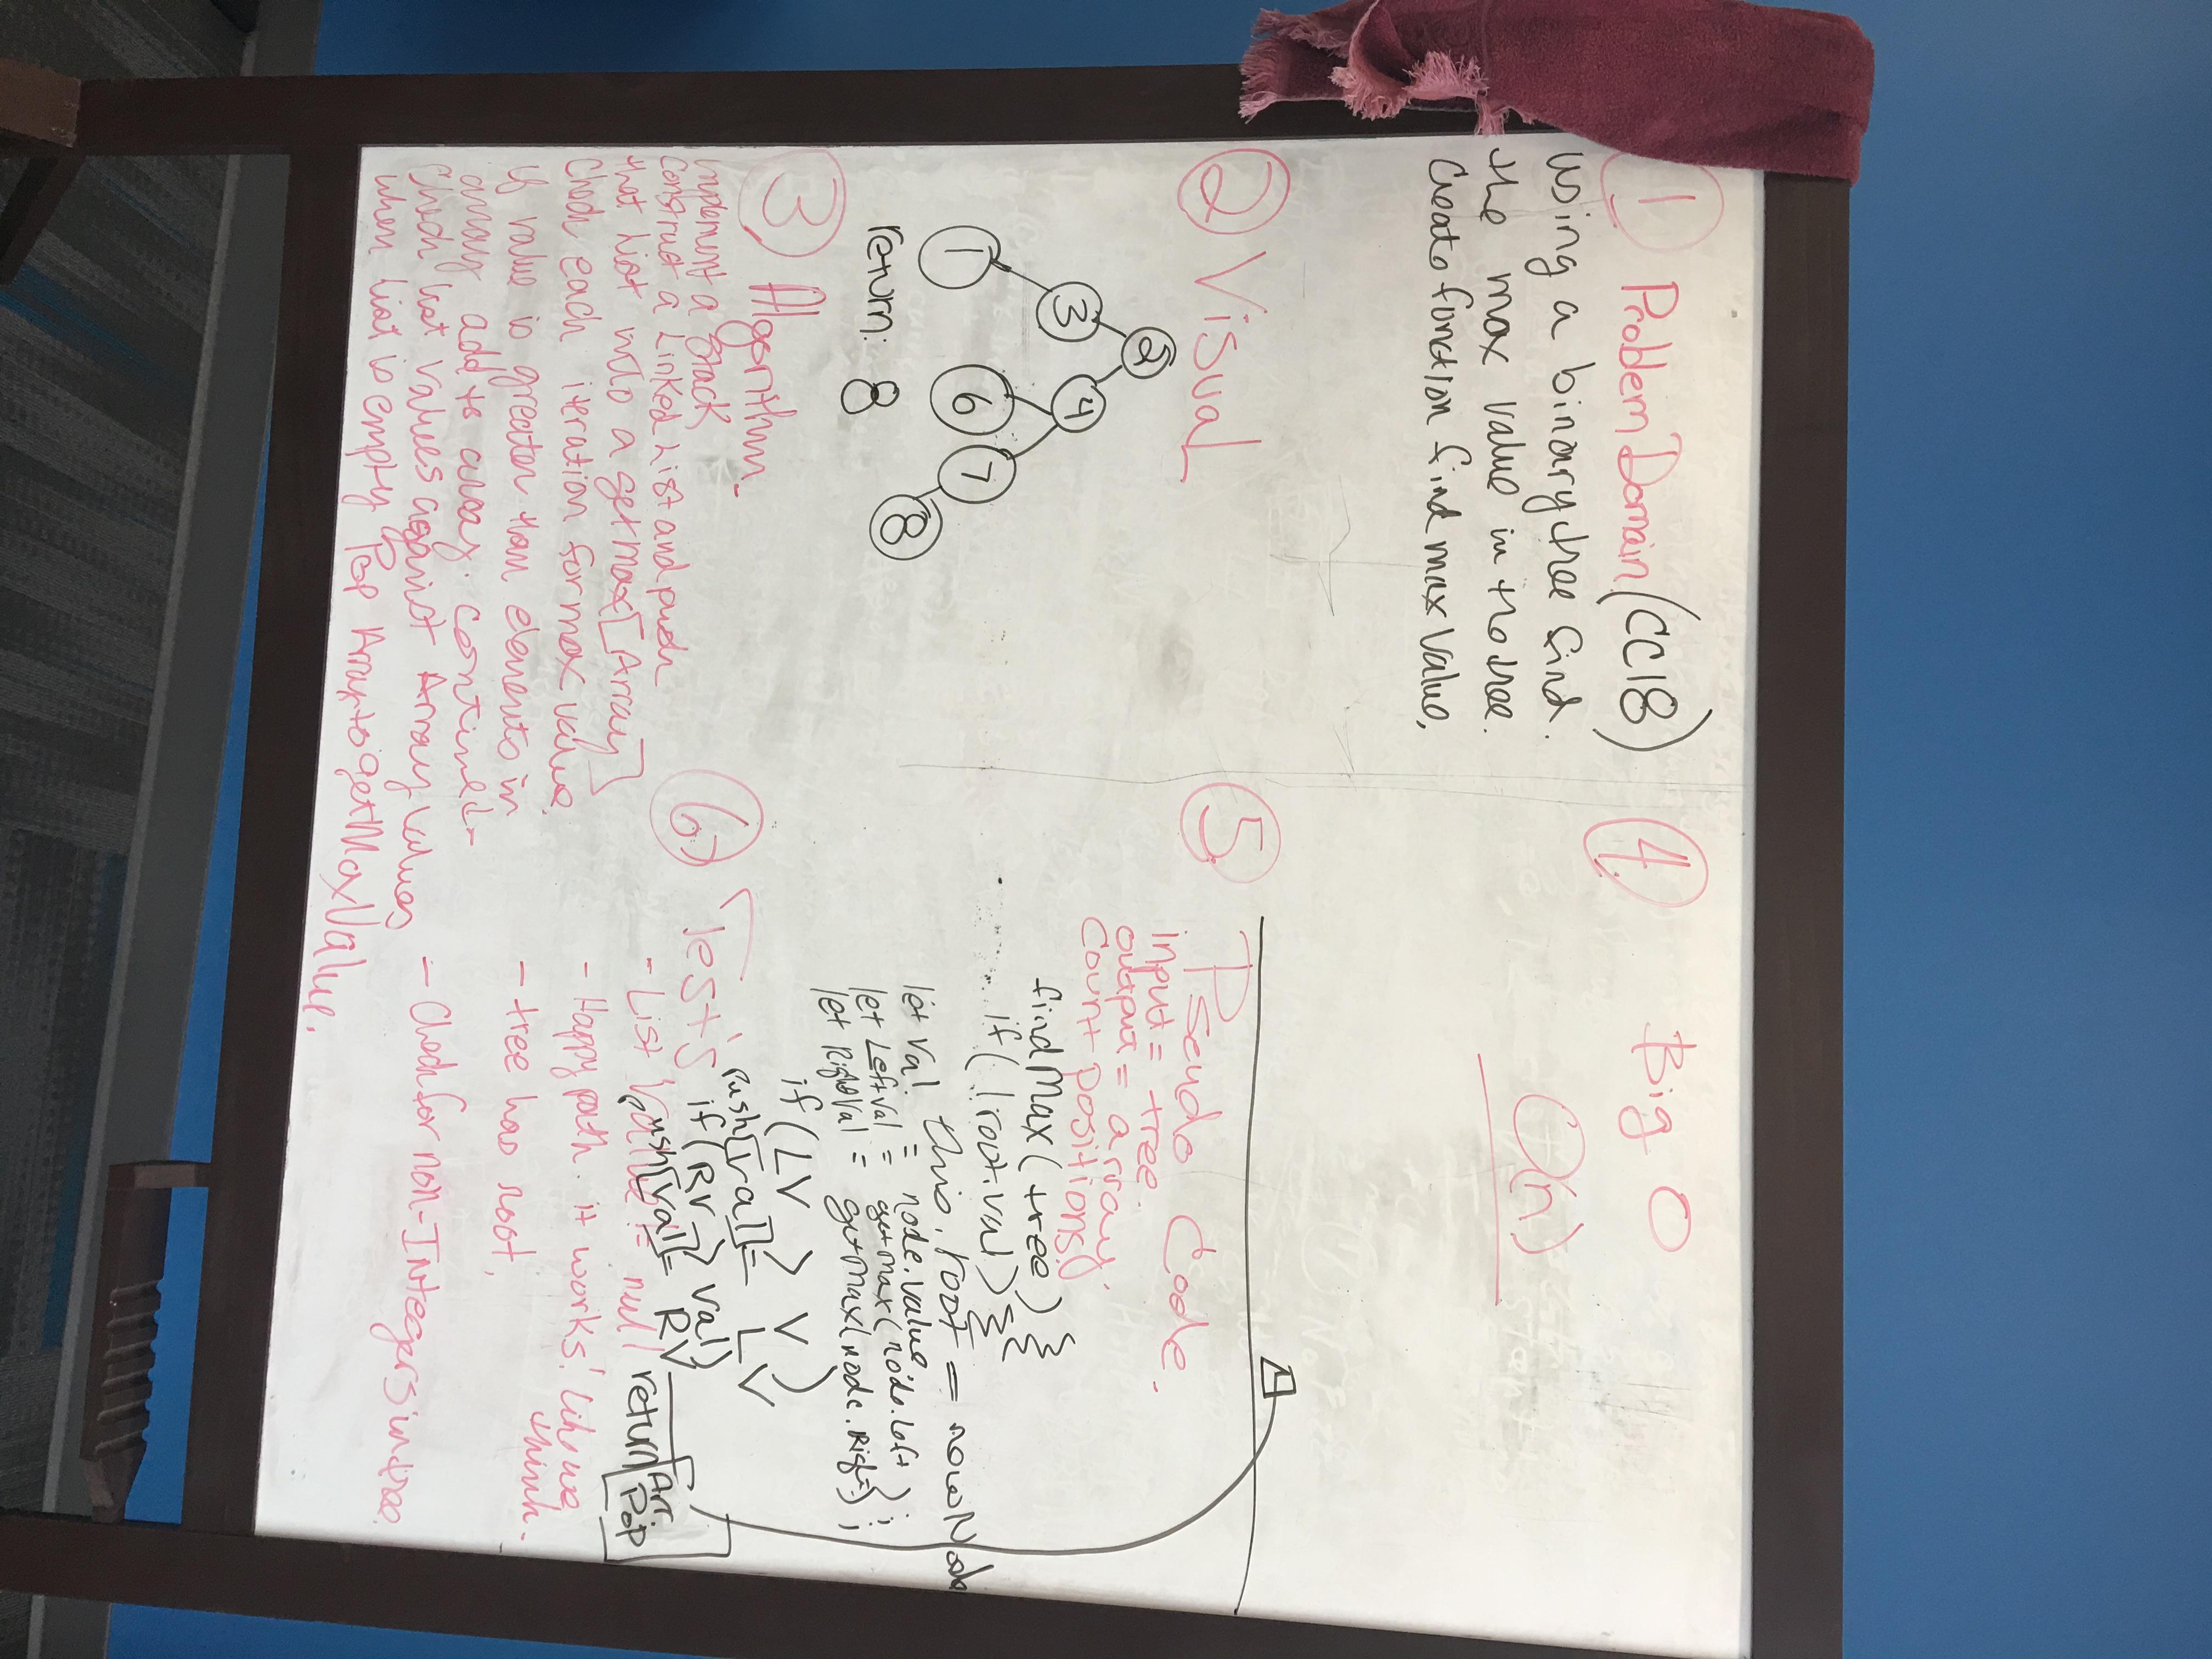 1 Problem Domain (CC18)
Using a binary tree find
the max value in the tree.
Create function find max value.
2 Visual
2
3 4
1 6 7
8
return: 8
3 Algorithm
implement a stack
construct a Linked List and push
that list into a getmax[Array]
Check each iteration for max value.
if value is greater than elements in
array add to array. Continue
Check list values against Array values
when list is empty Pop Array to getMaxValue.
4. Big O
O(n)
5 Pseudo Code.
input = tree.
output = array.
Count positions!
findMax(tree) {
if (!root.val) {
this.root = newNode
let val = node.value
let Leftval = getmax(node.left);
let Rightval = getmax(node.Right);
if (LV > V)
push[val]= LV
if (RV > val)
push[val]= RV
return Arr
Pop
6 Test's
- List Value = null
- Happy path. it works! like we
think.
- tree has root.
- Check for non-Integers in tree.